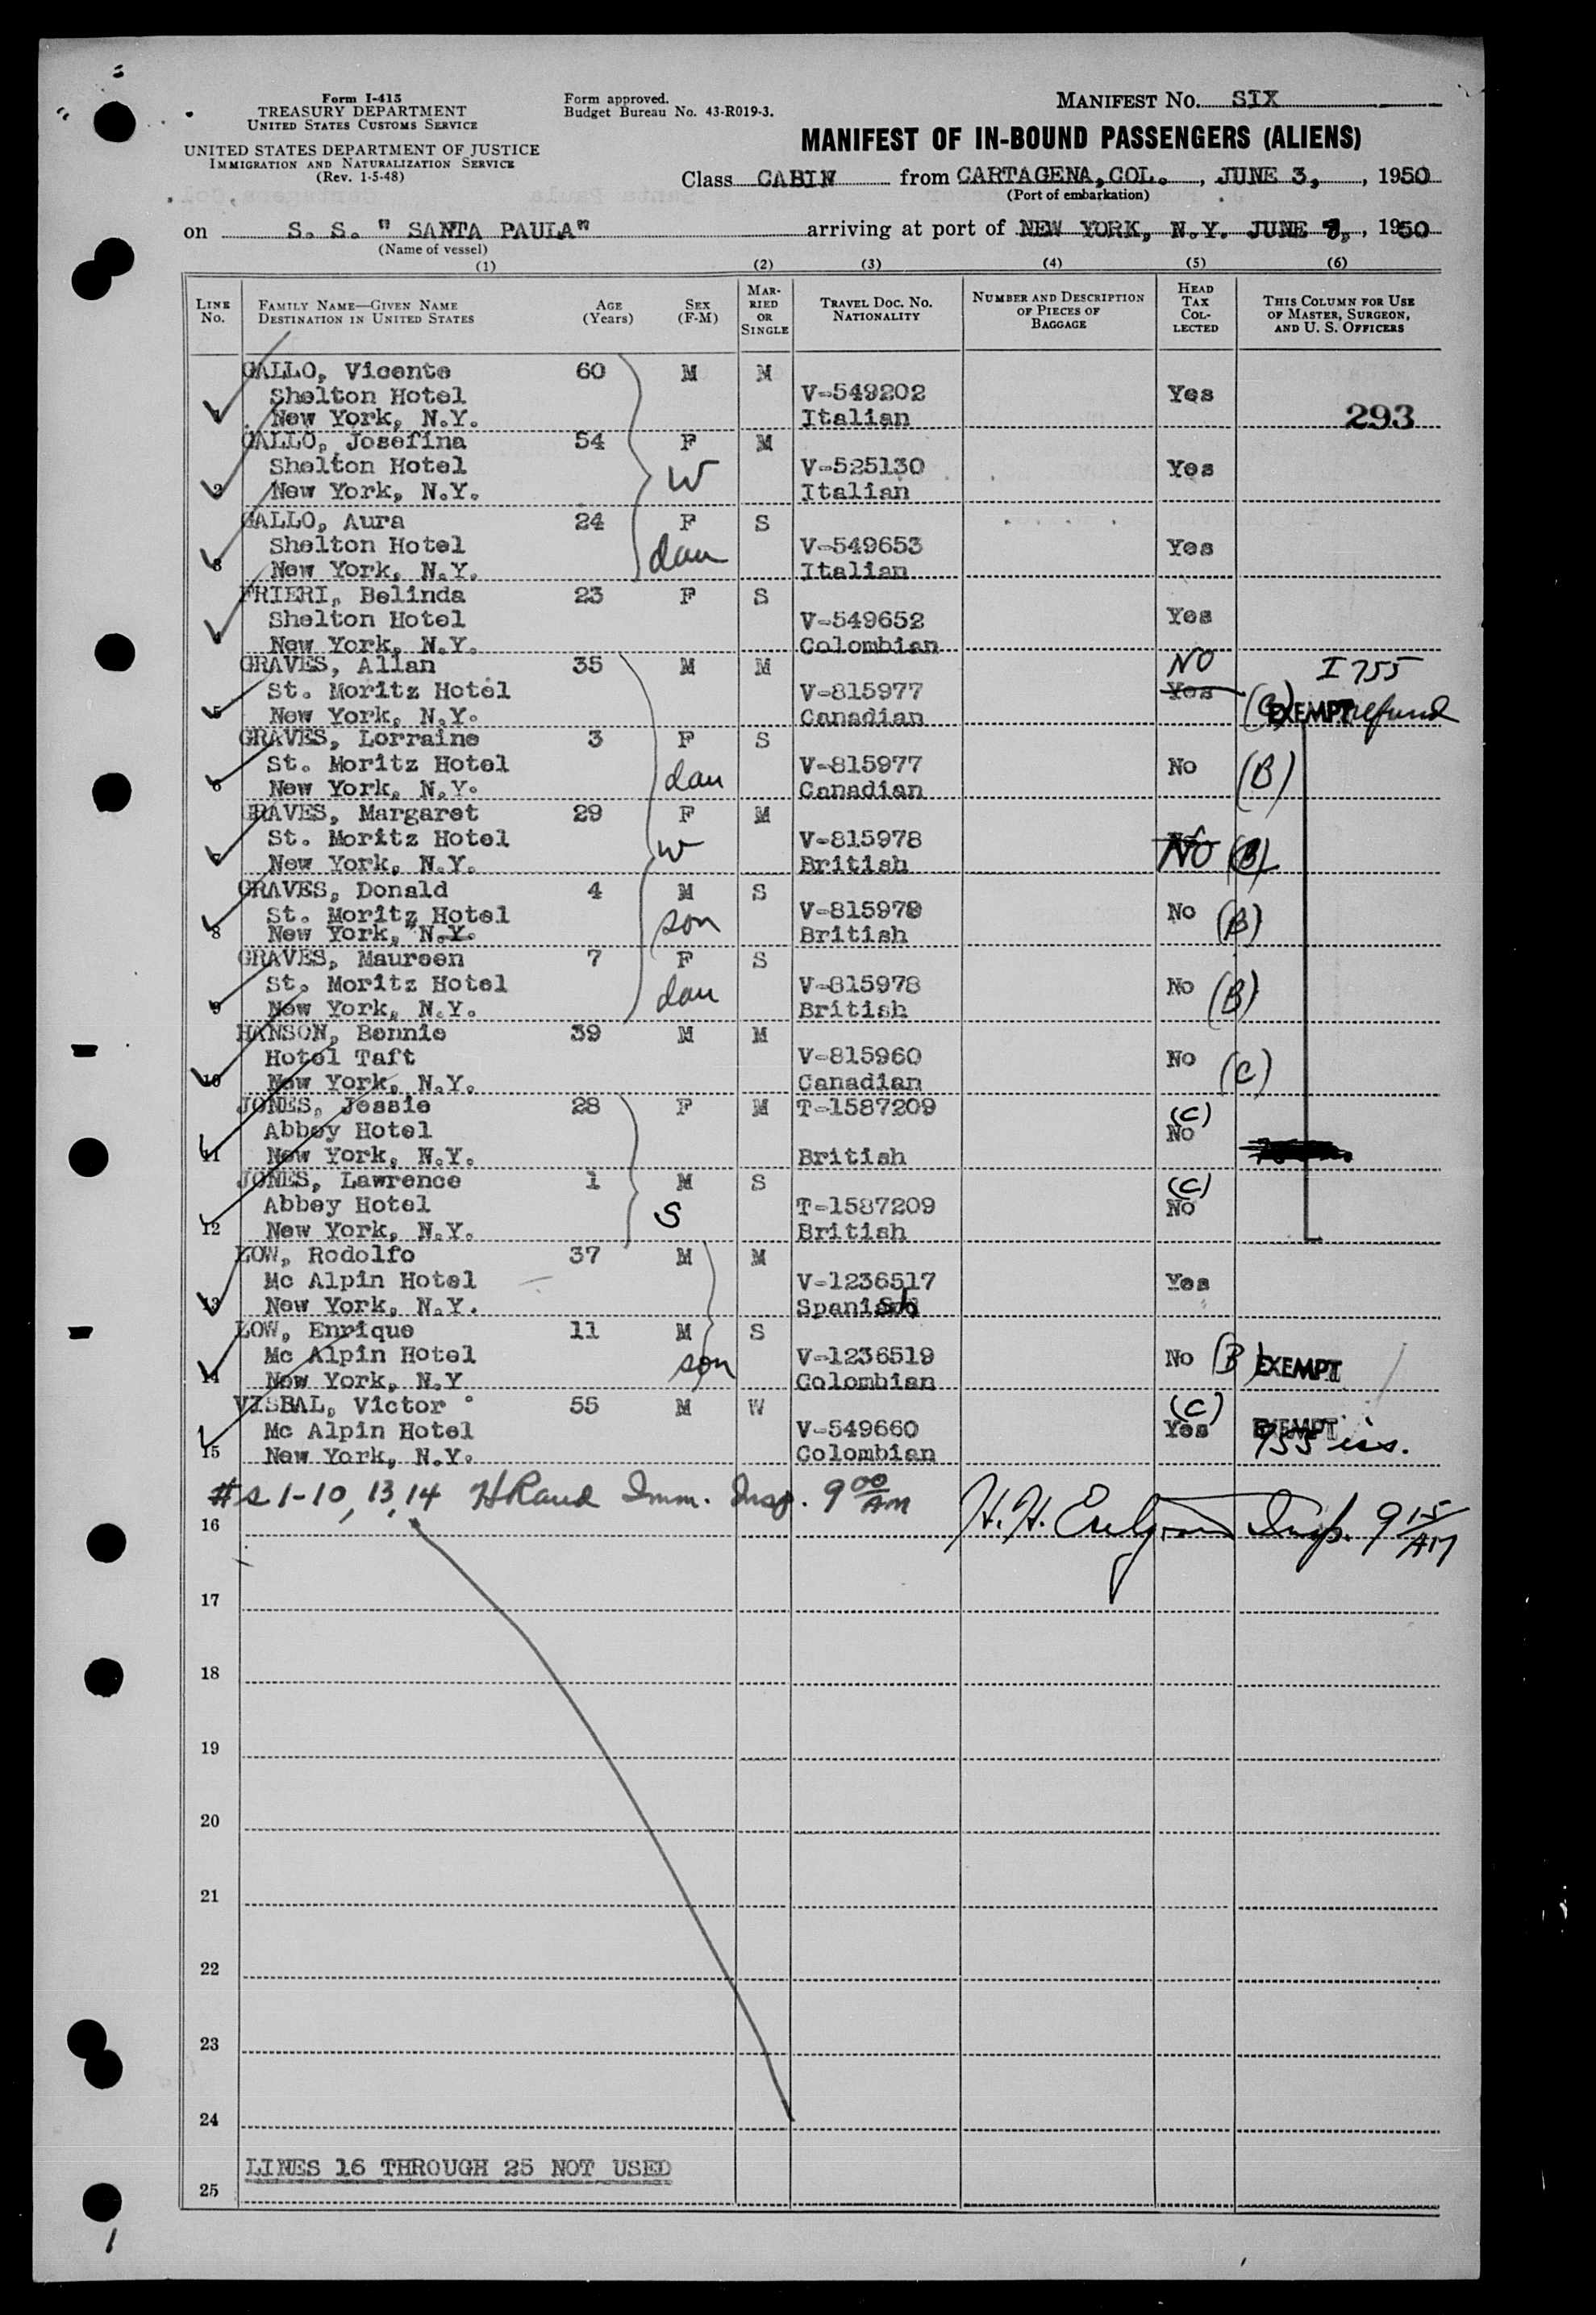 Form I-415
TREASURY DEPARTMENT
UNITED STATES CUSTOMS SERVICE
UNITED STATES DEPARTMENT OF JUSTICE
IMMIGRATION AND NATURALIZATION SERVICE
(Rev. 1-5-48)
Form approved.
Budget Bureau No. 43-R019-3.
MANIFEST NO. SIX
MANIFEST OF IN-BOUND PASSENGERS (ALIENS)
Class CABIN from CARTAGENA, COL., JUNE 3, 1950
(Port of embarkation)
on S. S. " SANTA PAULA" arriving at port of NEW YORK, N.Y. JUNE 7, 1950
(Name of vessel)
(1) (2) (3) (4) (5) (6)
LINE NO. FAMILY NAME—GIVEN NAME DESTINATION IN UNITED STATES AGE (Years) SEX (F-M) MARRIED OR SINGLE TRAVEL DOC. NO. NATIONALITY NUMBER AND DESCRIPTION OF PIECES OF BAGGAGE HEAD TAX COLLECTED THIS COLUMN FOR USE OF MASTER, SURGEON, AND U. S. OFFICERS
GALLO, Vicente 60 M M
Shelton Hotel V-549202 Yes
1 New York, N.Y. Italian 293
GALLO, Josefina 54 F M
Shelton Hotel W V-525130 Yes
2 New York, N.Y. Italian
GALLO, Aura 24 F S
Shelton Hotel dau V-549653 Yes
3 New York, N.Y. Italian
FRIERI, Belinda 23 F S
Shelton Hotel V-549652 Yes
4 New York, N.Y. Colombian
GRAVES, Allan 35 M M NO I 755
St. Moritz Hotel V-815977 Yes
5 New York, N.Y. Canadian EXEMPT refund
GRAVES, Lorraine 3 F S
St. Moritz Hotel dau V-815977 No (B)
6 New York, N.Y. Canadian
GRAVES, Margaret 29 F M
St. Moritz Hotel W V-815978 NO (B)
7 New York, N.Y. British
GRAVES, Donald 4 M S
St. Moritz Hotel son V-815978 No (B)
8 New York, N.Y. British
GRAVES, Maureen 7 F S
St. Moritz Hotel dau V-815978 No (B)
9 New York, N.Y. British
HANSON, Bennie 39 M M
Hotel Taft V-815960 No (C)
10 New York, N.Y. Canadian
JONES, Jessie 28 F M T-1587209 (C)
Abbey Hotel No
11 New York, N.Y. British
JONES, Lawrence 1 M S (C)
Abbey Hotel S T-1587209 No
12 New York, N.Y. British
LOW, Rodolfo 37 M M
Mc Alpin Hotel V-1236517 Yes
13 New York, N.Y. Spanish
LOW, Enrique 11 M S
Mc Alpin Hotel son V-1236519 No (B) EXEMPT
14 New York, N.Y Colombian
VISBAL, Victor 55 M W (C)
Mc Alpin Hotel V-549660 Yes EXEMPT
15 New York, N.Y. Colombian 755 iss.
#s 1-10, 13, 14 Imm. Insp. 9 00 AM H. H. Insp. 9 15 AM
16
17
18
19
20
21
22
23
24
LINES 16 THROUGH 25 NOT USED
25
1